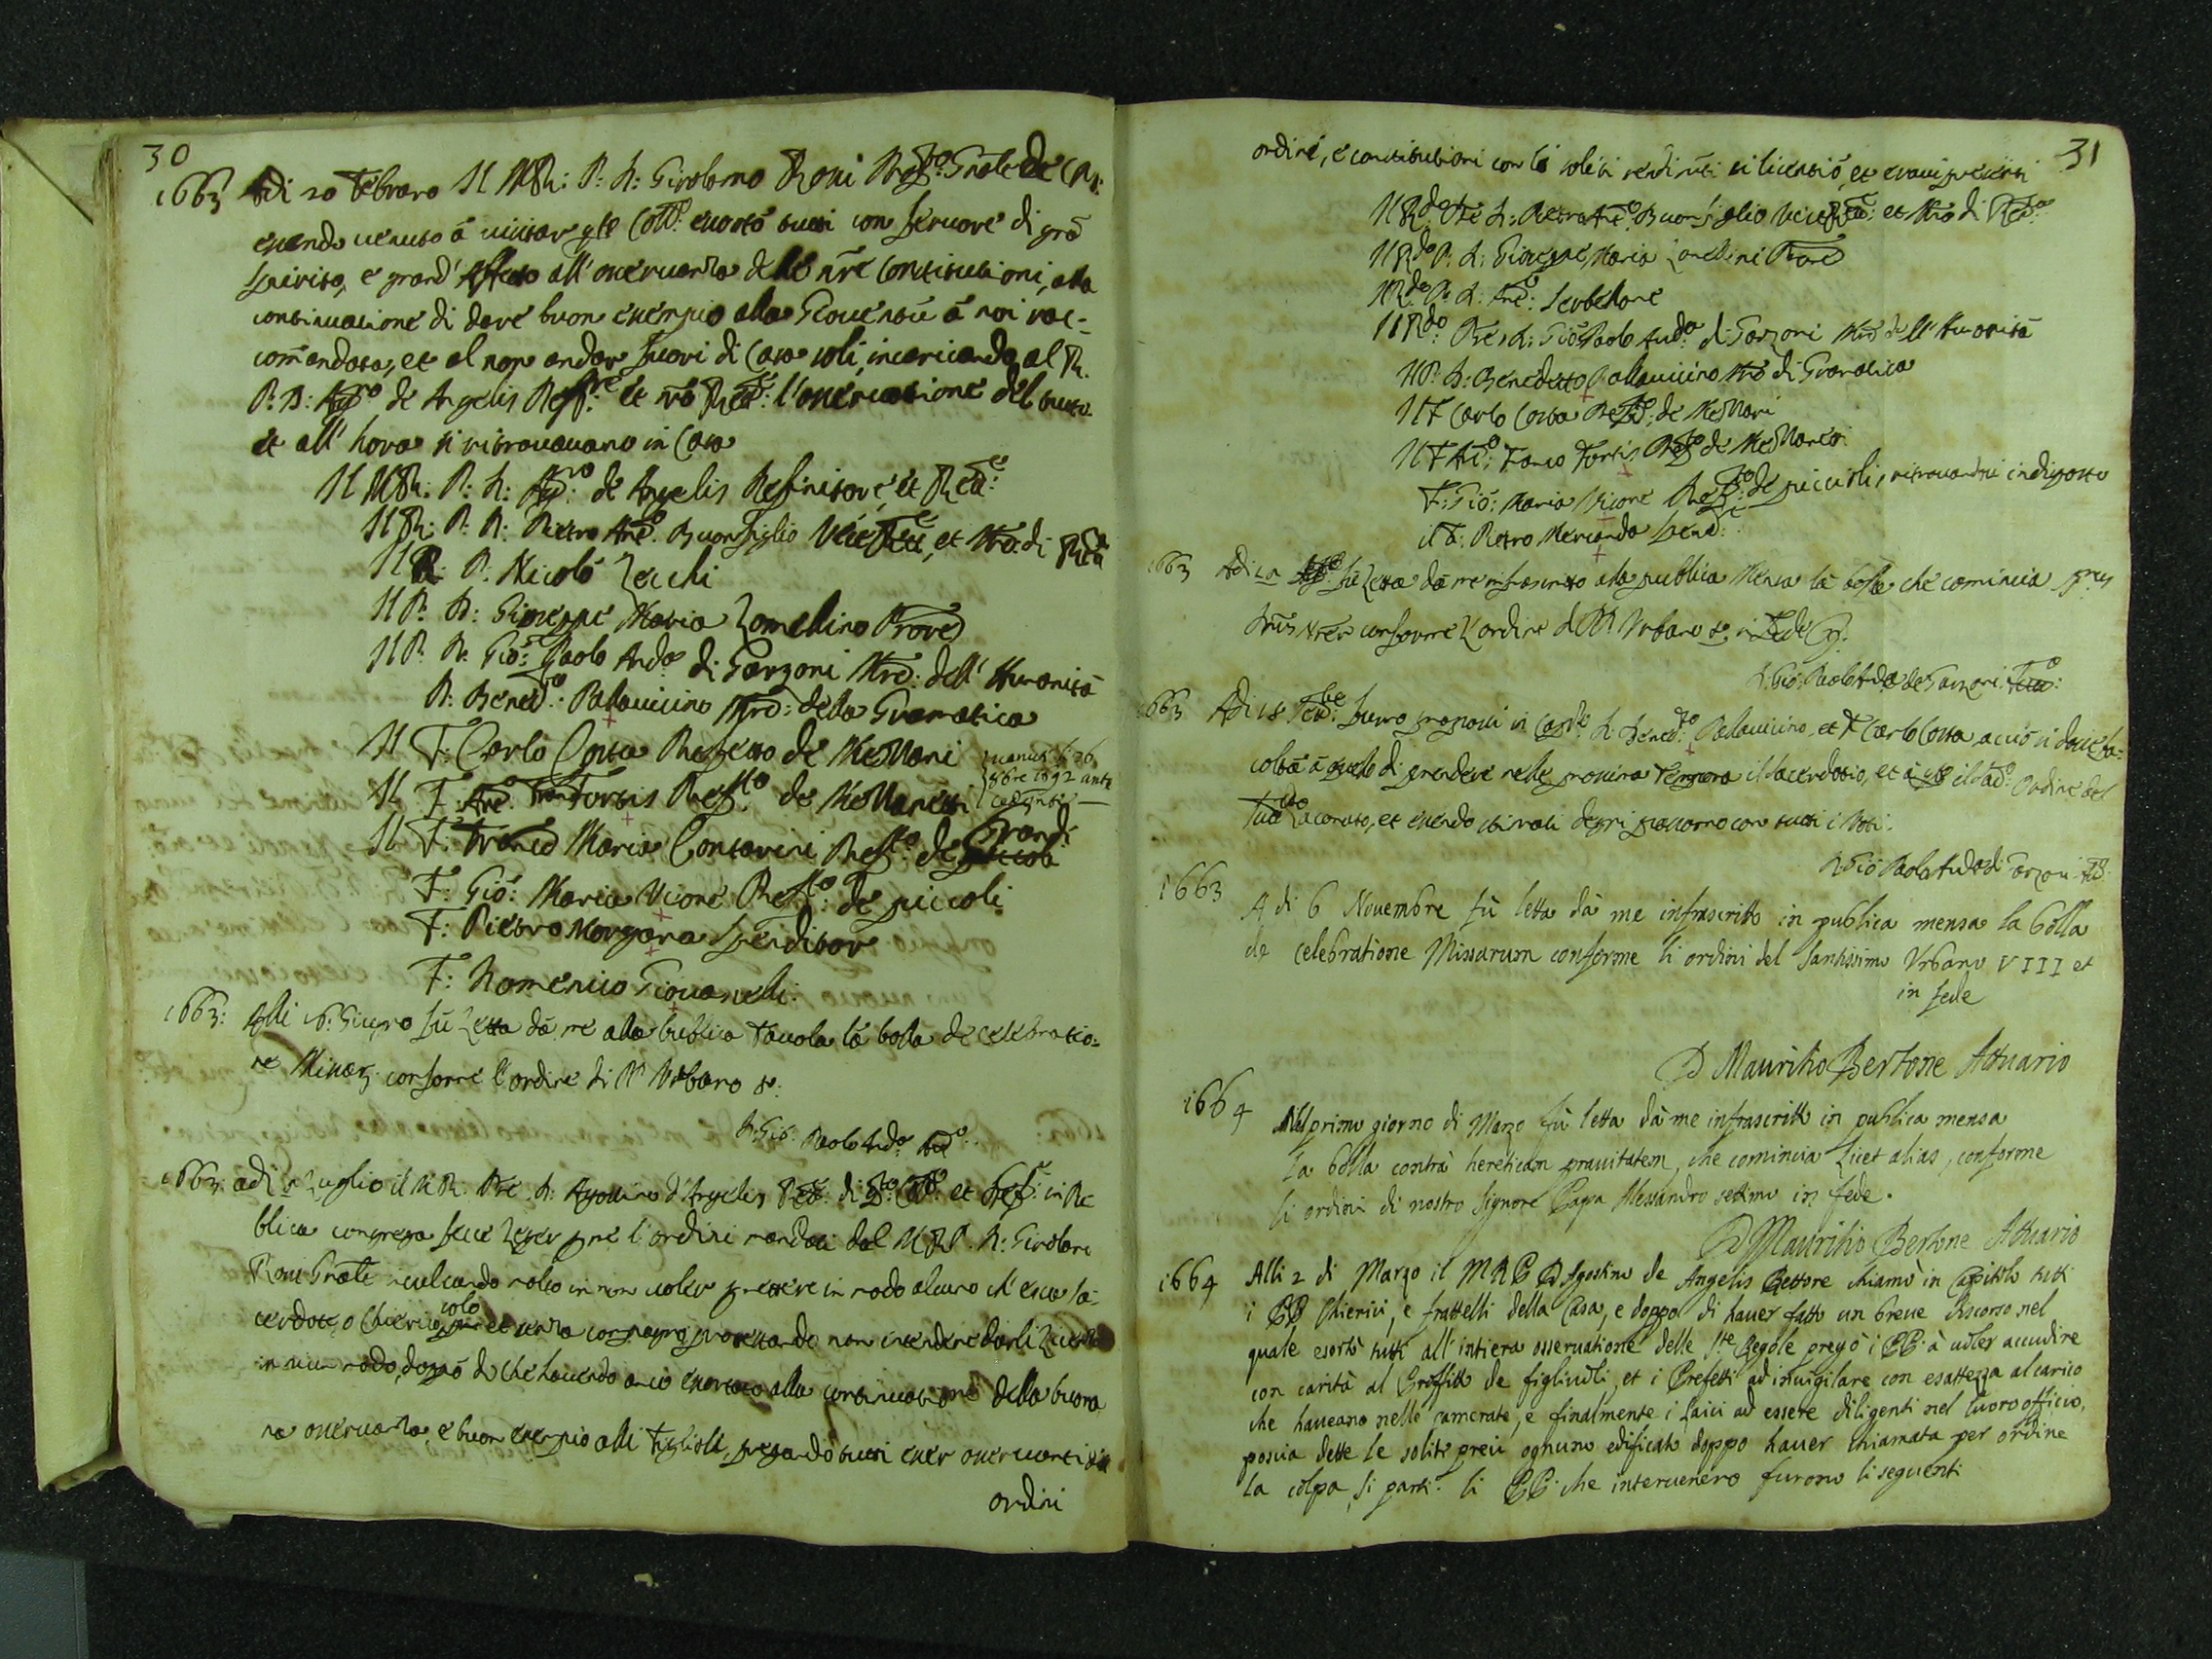 30
1663 Adi 20 Febraro Il M.R: P: D: Girolamo Roni Prep.to Gn̄ale
essendo venuto à visitar q̄sto Coll.o essortò tutti con fervore di grā
spirito, e grand' affetto all' osservanza delle n̄re Constitutioni, alla
continuatione di dare buon essempio alla Gioventù à noi rac-
com̄andata, et al non andar fuori di Casa soli, incaricando al R.
P: D: Ag.no de Angelis et n̄ro Rett.e: l'osservatione del tutto
et all' hora si ritrovavano in Casa
Il M.R: P: D: Ag.no: de Angelis Definitore, et Rett.e:
Il R: P: D: Pietro Ant.o Buonfiglio Vice Rett.e, et M.ro di Rett.a
Il R: P: Nicolò Zecchi
Il P: D: Gioseppe Maria Lomellino Proved
Il P: D: Gio: Paolo And.a di Garzoni M.ro: dell' Humanità
P: Bened.o: Palavicino M.ro: della Gramatica
Il F: Carlo Costa Prefetto de Mezzani
Il F: Ant.o Fran Fortis Pref.tto de Mezzanetti
Il F: Franc.o Maria Contarini Pref.to de Grandi piccoli
F: Gio: Maria Vicone Pref.to: de piccoli
F: Pietro Morgana Spenditor
F: Domenico Giovanelli:
1663: Alli 16: Giugno fù Letta dà me alla publica Tavola la bolla de celebratio-
ne Missar. conforme l'ordine di PP Urbano 8:
D: Gio: Paolo And.a Att.o:
1663 adi Luglio il M.R. Pre. D: Agostino d'Angelis Rett.e: di q.to Coll.o: et Def.e: in Pu
blica congrega fece legger l'ordini mandati dal M.R.P. D: Girolamo
Roni Gn̄ale inculcando molto in non voler permettere in modo alcuno ch' esca sa-
cerdote, o Chierico solo et senza compagno, protestando non intendere darli Licenza
in niun modo, doppò di che havendo anco essortato alla continuatione della buona
na osservanza, e buon essempio alli figlioli, pregando tutti esser osservanti di
ordini
31
ordini, e constitutioni con li soliti rendim.ti si licentiò, et eravi presenti
Il R.do Pre D: Pietro Ant.o Buonfiglio Vice Rett.e: et M.ro di Rett.a
Il R.do P: D: Gioseppe Maria Lomellini Proved
Il R.do P: D: Ant.o: Serbellone
Il R.do: Pre D: Gio: Paolo And.a di Garzoni M.ro dell' Humanità
Il P: D: Benedetto Pallavicino M.ro di Gramatica
Il F Carlo Costa Pref.to: de Mezzani
Il F Ant.o: Franco Fortis Pref.to de Mezzanetti
F: Gio: Maria Vicone Pref.to: de piccoli, ritrovandosi indisposto
il F: Pietro Spend.e:
1663 Adi fù Letta dà me infrascritto alla publica Mensa la bolla che comincia
conforme l'ordine di PP Urbano 8. in fede
D: Gio: Paolo And.a de Garzoni Att.o:
1663 Adi 18 furno proposti in Cap.lo D: Bened.to Palavicino, et F Carlo Costa, acciò si desse fa-
coltà à quelo di prendere nelle prossima Tempora il Sacerdotio, et à q̄sto il Ordine del
et essendo stimati degni passorno con tutti i Voti.
D Gio: Paolo And.a di Garzoni Att.o
1663 A di 6 Novembre fù letta dà me infrascritto in publica mensa la bolla
de celebratione Missarum conforme li ordini del Santissimo Urbano VIII et
in fede
D Mauritio Bertone Attuario
1664 Nel primo giorno di Marzo fù letta dà me infrascritto in publica mensa
la bolla contrà hereticam pravitatem, che comincia Licet alias, conforme
li ordini di nostro Signore Papa Alessandro settimo in fede.
D Mauritio Bertone Attuario
1664 Alli 2 di Marzo il M R P D Agostino de Angelis Rettore chiamò in Capitolo tutti
i PP Chierici, e frattelli della Casa, e doppo di haver fatto un breve discorso nel
quale esortò tutti all' intiera osservatione delle S.te Regole pregò i PP. à voler accudire
con carità al Proffitto de figliuoli, et i Prefetti ad invigilare con esattezza al carico
che haveano nelle camerate, e finalmente i Laici ad essere diligenti nel lvoro officio,
poscia dette le solite preci ognuno edificato doppo haver chiamata per ordine
la colpa, si partì. li PP. che intervenero furono li seguenti